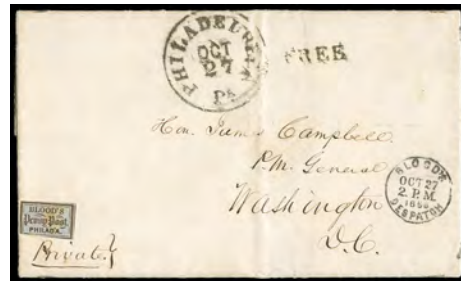 PHILADELPHIA
OCT
27
Pa
FREE
Hon. James Campbell
P.M. General
Washington
D.C.
BLOOD'S
OCT 27
2 P.M.
DESPATCH
BLOOD'S
Penny Post
PHILADA.
Private